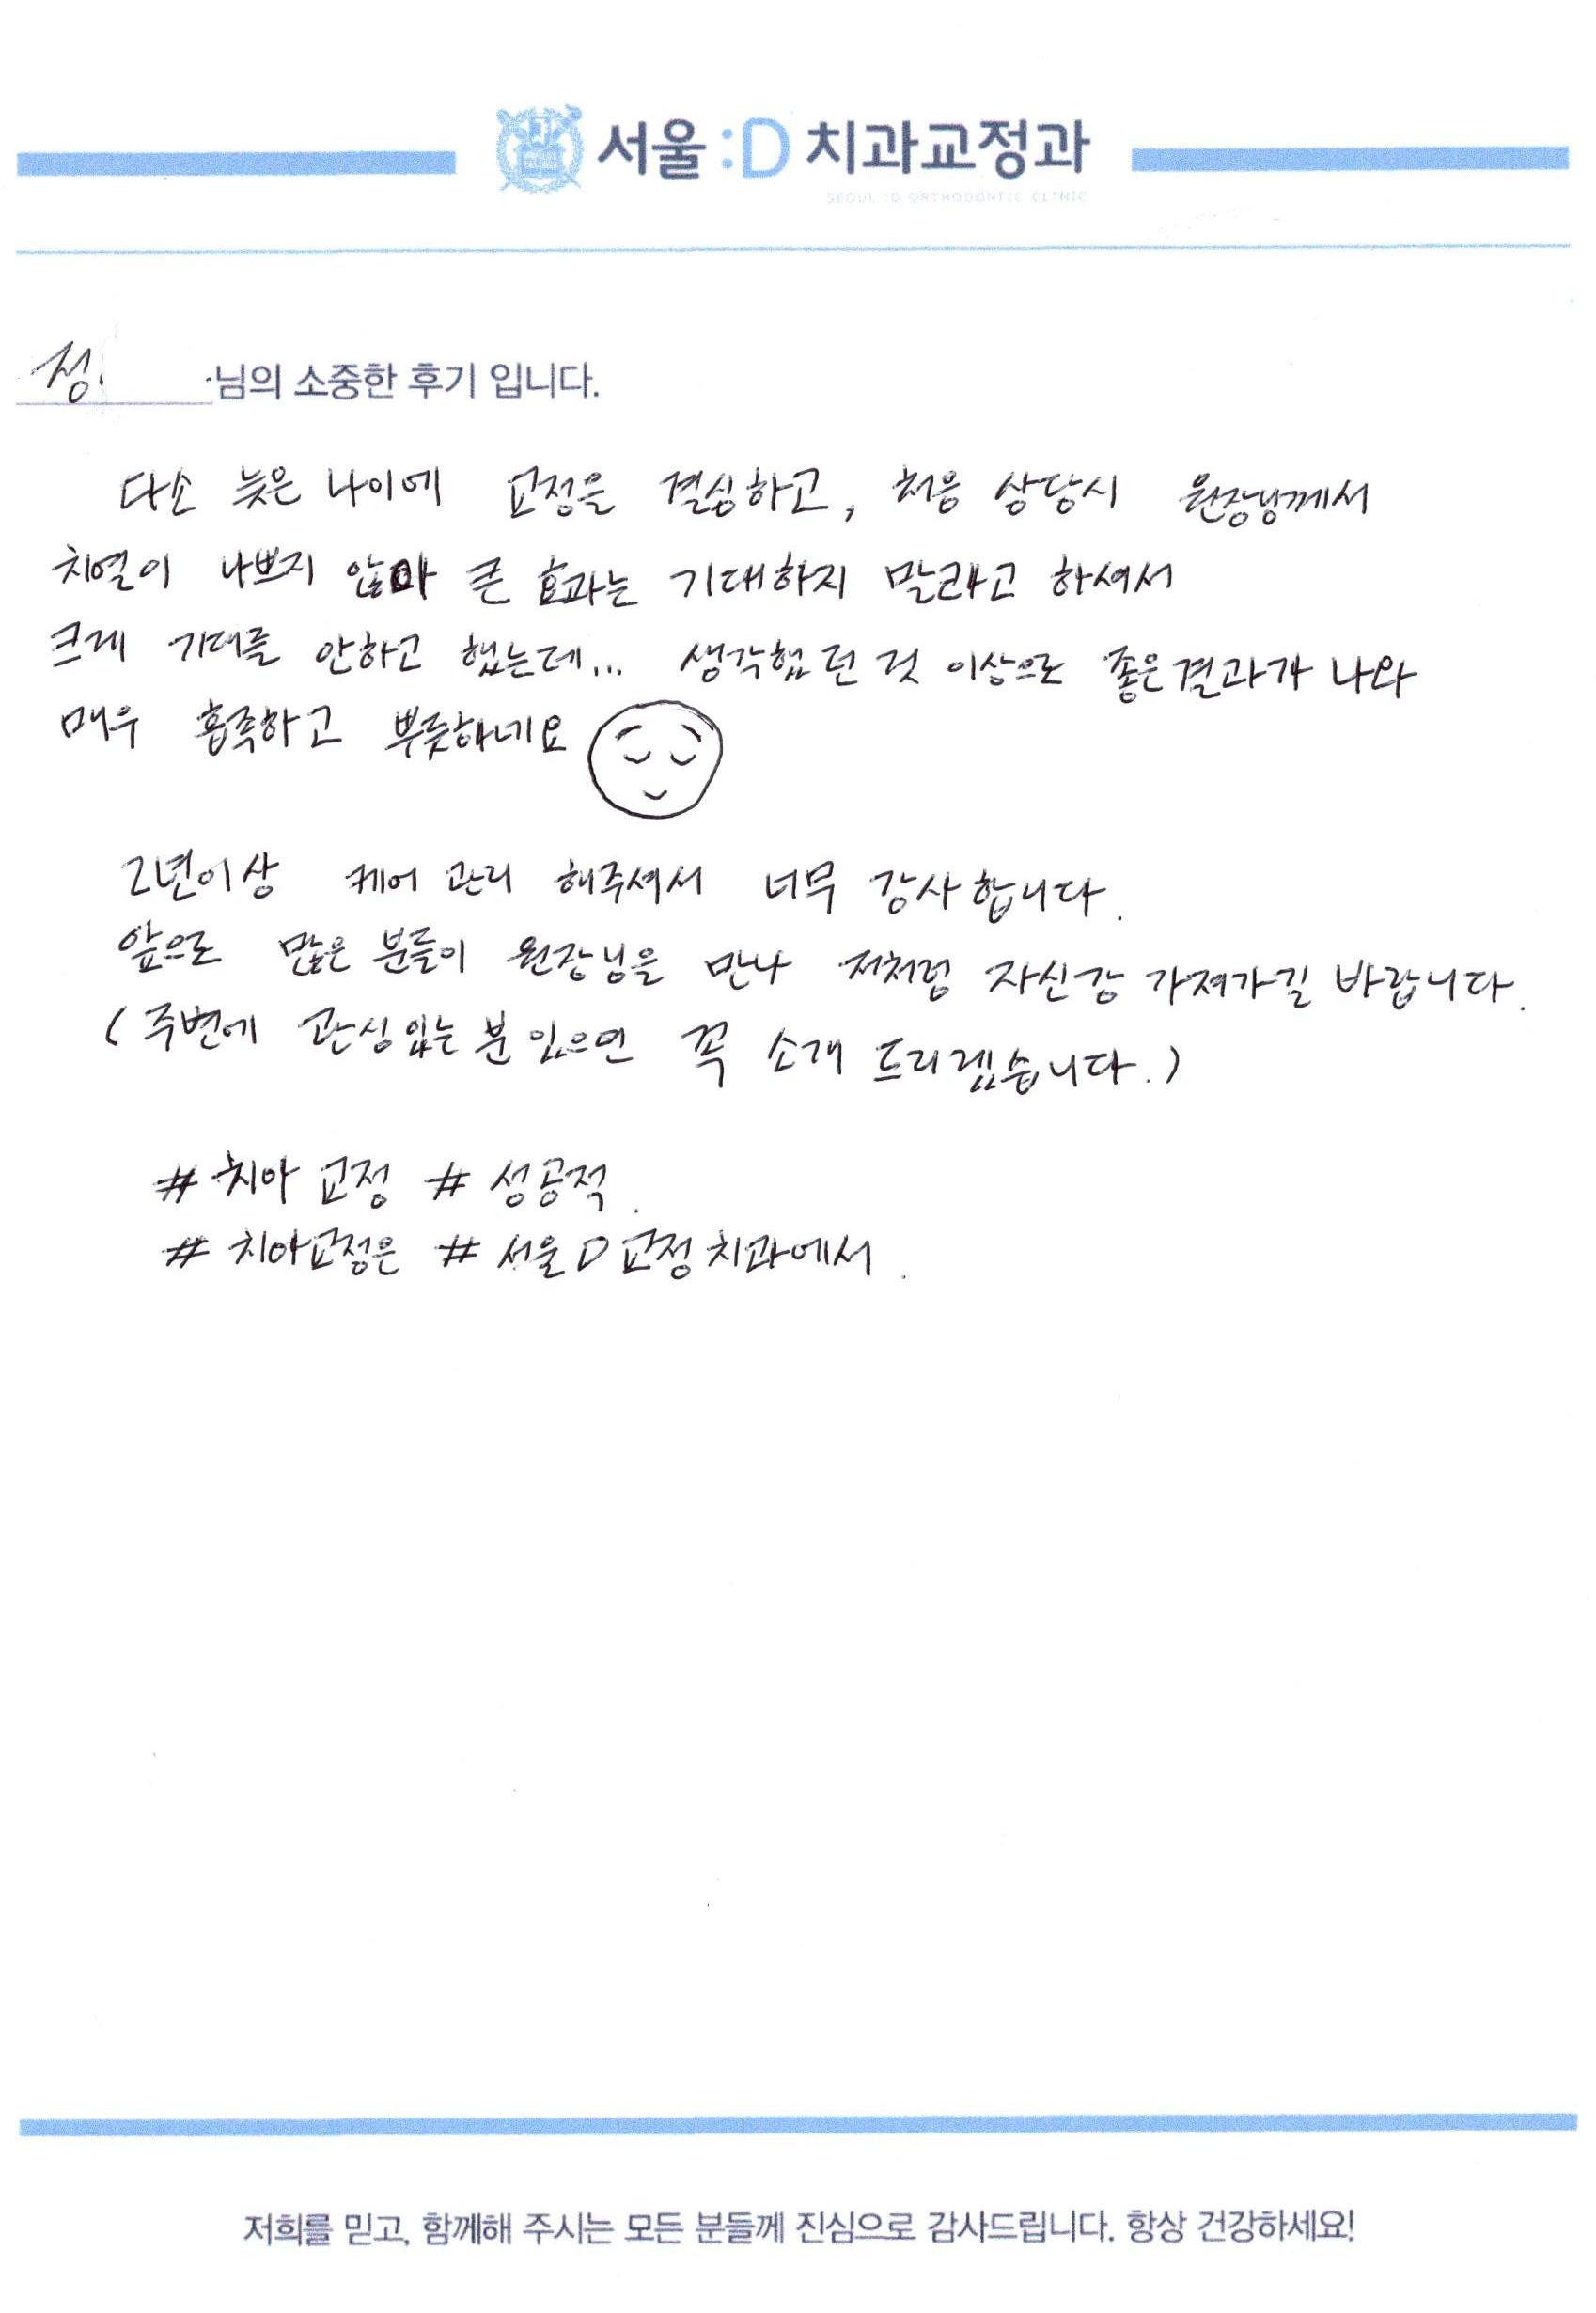 서울 :D 치과교정과
SEOUL :D ORTHODONTIC CLINIC
정 님의 소중한 후기 입니다.
다소 늦은 나이에 교정을 결심하고, 처음 상담시 원장님께서
치열이 나쁘지 않아 큰 효과는 기대하지 말라고 하셔서
크게 기대를 안하고 했는데... 생각했던 것 이상으로 좋은결과가 나와
매우 흡족하고 뿌듯하네요
2년이상 케어 관리 해주셔서 너무 감사합니다.
앞으로 많은 분들이 원장님을 만나 저처럼 자신감 가져가길 바랍니다.
(주변에 관심있는 분 있으면 꼭 소개 드리겠습니다.)
# 치아 교정 # 성공적.
# 치아교정은 # 서울D교정치과에서.
저희를 믿고, 함께해 주시는 모든 분들께 진심으로 감사드립니다. 항상 건강하세요!